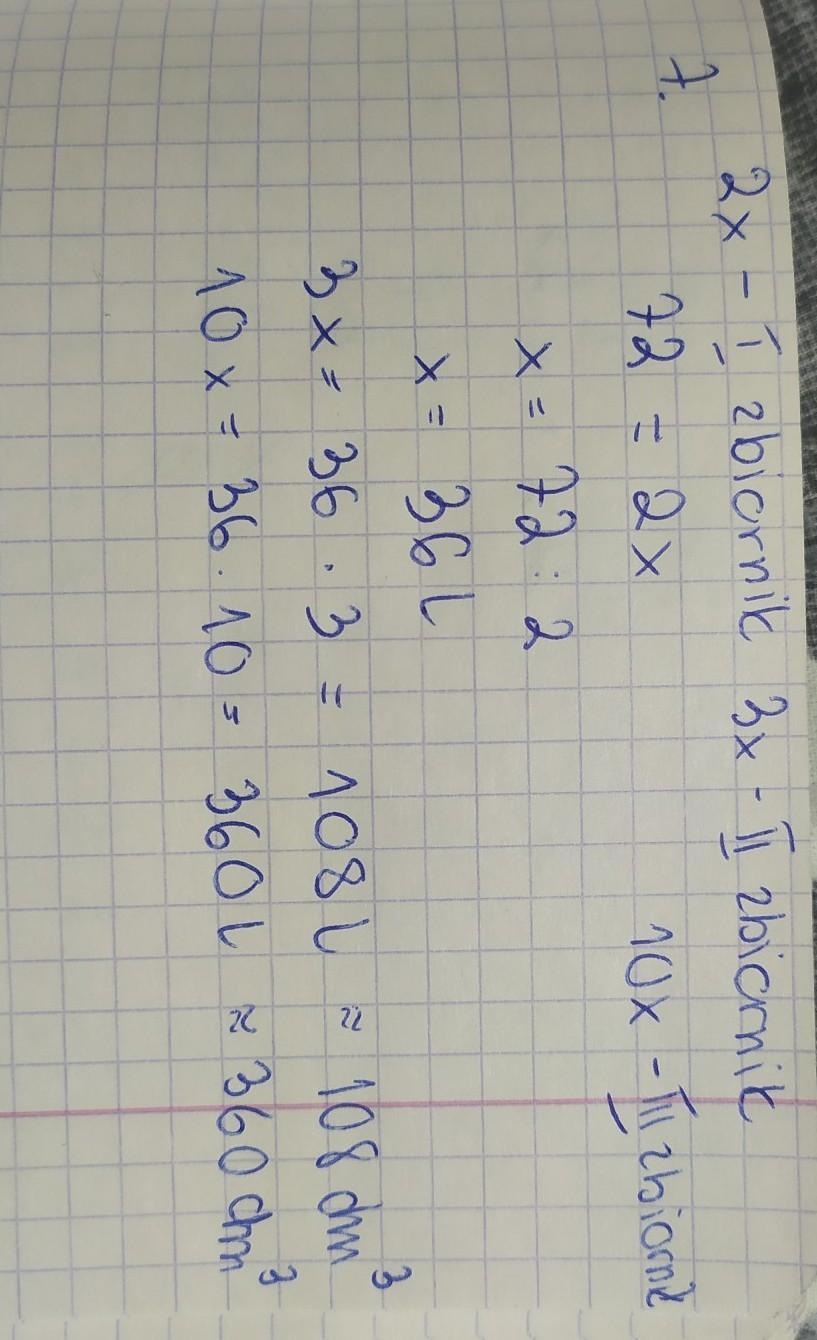 7. 2x - I zbiornik 3x - II zbiornik
72 = 2x 10x - III zbiornik
x = 72 : 2
x = 36 l
3x = 36 · 3 = 108 l ≈ 108 dm³
10x = 36 · 10 = 360 l ≈ 360 dm³